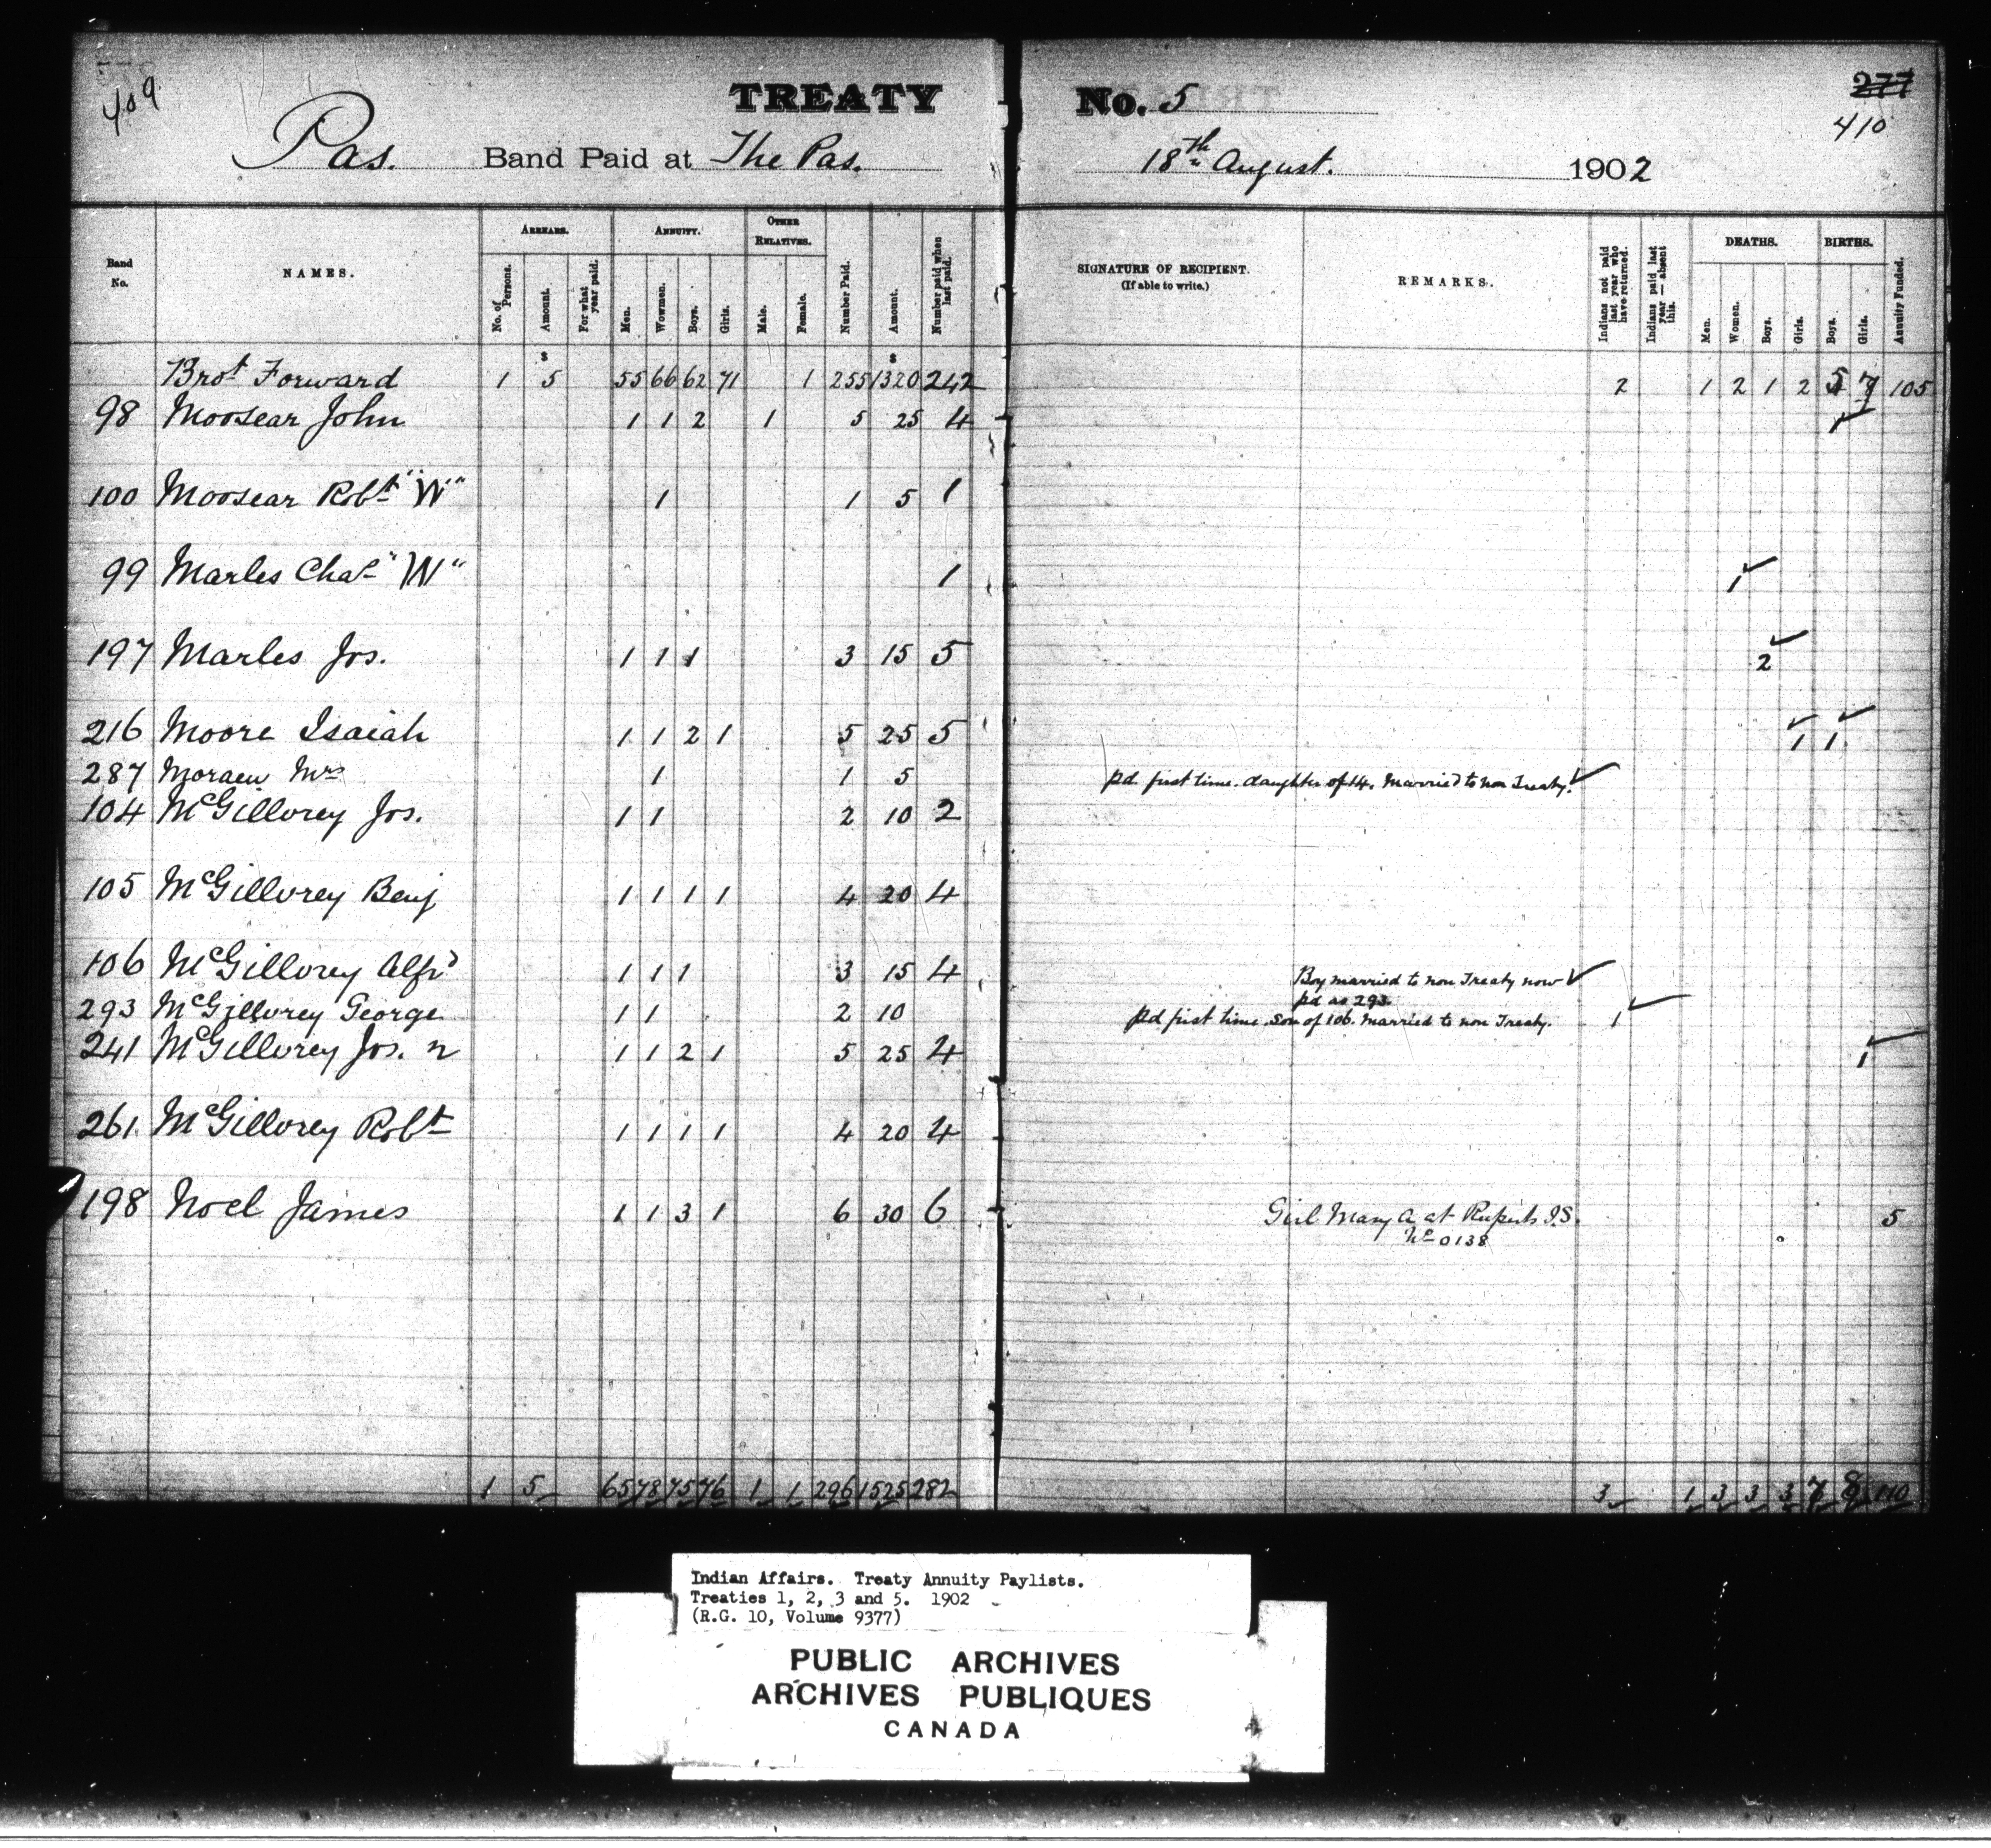 409
TREATY No. 5
277
410
Pas. Band Paid at The Pas. 18th August. 1902
Band No.
NAMES.
ARREARS.
No. of Persons.
Amount.
For what year paid.
ANNUITY.
Men.
Wowmen.
Boys.
Girls.
OTHER RELATIVES.
Male.
Female.
Number Paid.
Amount.
Number paid when last paid.
SIGNATURE OF RECIPIENT.
(If able to write.)
REMARKS.
Indians not paid last year who have returned.
Indians paid last year — absent this.
DEATHS.
Men.
Women.
Boys.
Girls.
BIRTHS.
Boys.
Girls.
Annuity Funded.
$ $
Brot Forward 1 5 55 66 62 71 1 255 1320 242 2 1 2 1 2 5 7 105
98 Moosear John 1 1 2 1 5 25 4 1
100 Moosear Robt "W" 1 1 5 1
99 Marles Chas "W" 1 1
197 Marles Jos. 1 1 1 3 15 5 2
216 Moore Isaiah 1 1 2 1 5 25 5 1 1
287 Mrs 1 1 5 pd first time. daughter of 14. Married to non Treaty.
104 McGillvrey Jos. 1 1 2 10 2
105 McGillvrey Benj 1 1 1 1 4 20 4
106 McGillvrey Alfd 1 1 1 3 15 4 Boy married to non Treaty now
pd as 293.
293 McGillvrey George 1 1 2 10 pd first time. Son of 106. Married to non Treaty. 1
241 McGillvrey Jos. n 1 1 2 1 5 25 4 1
261 McGillvrey Robt 1 1 1 1 4 20 4
198 Noel James 1 1 3 1 6 30 6 Girl Mary A at Ruperts I.S. 5
No 0138
1 5 65 78 75 76 1 1 296 1525 282 3 1 3 3 3 7 8 110
Indian Affairs. Treaty Annuity Paylists.
Treaties 1, 2, 3 and 5. 1902
(R.G. 10, Volume 9377)
PUBLIC ARCHIVES
ARCHIVES PUBLIQUES
CANADA